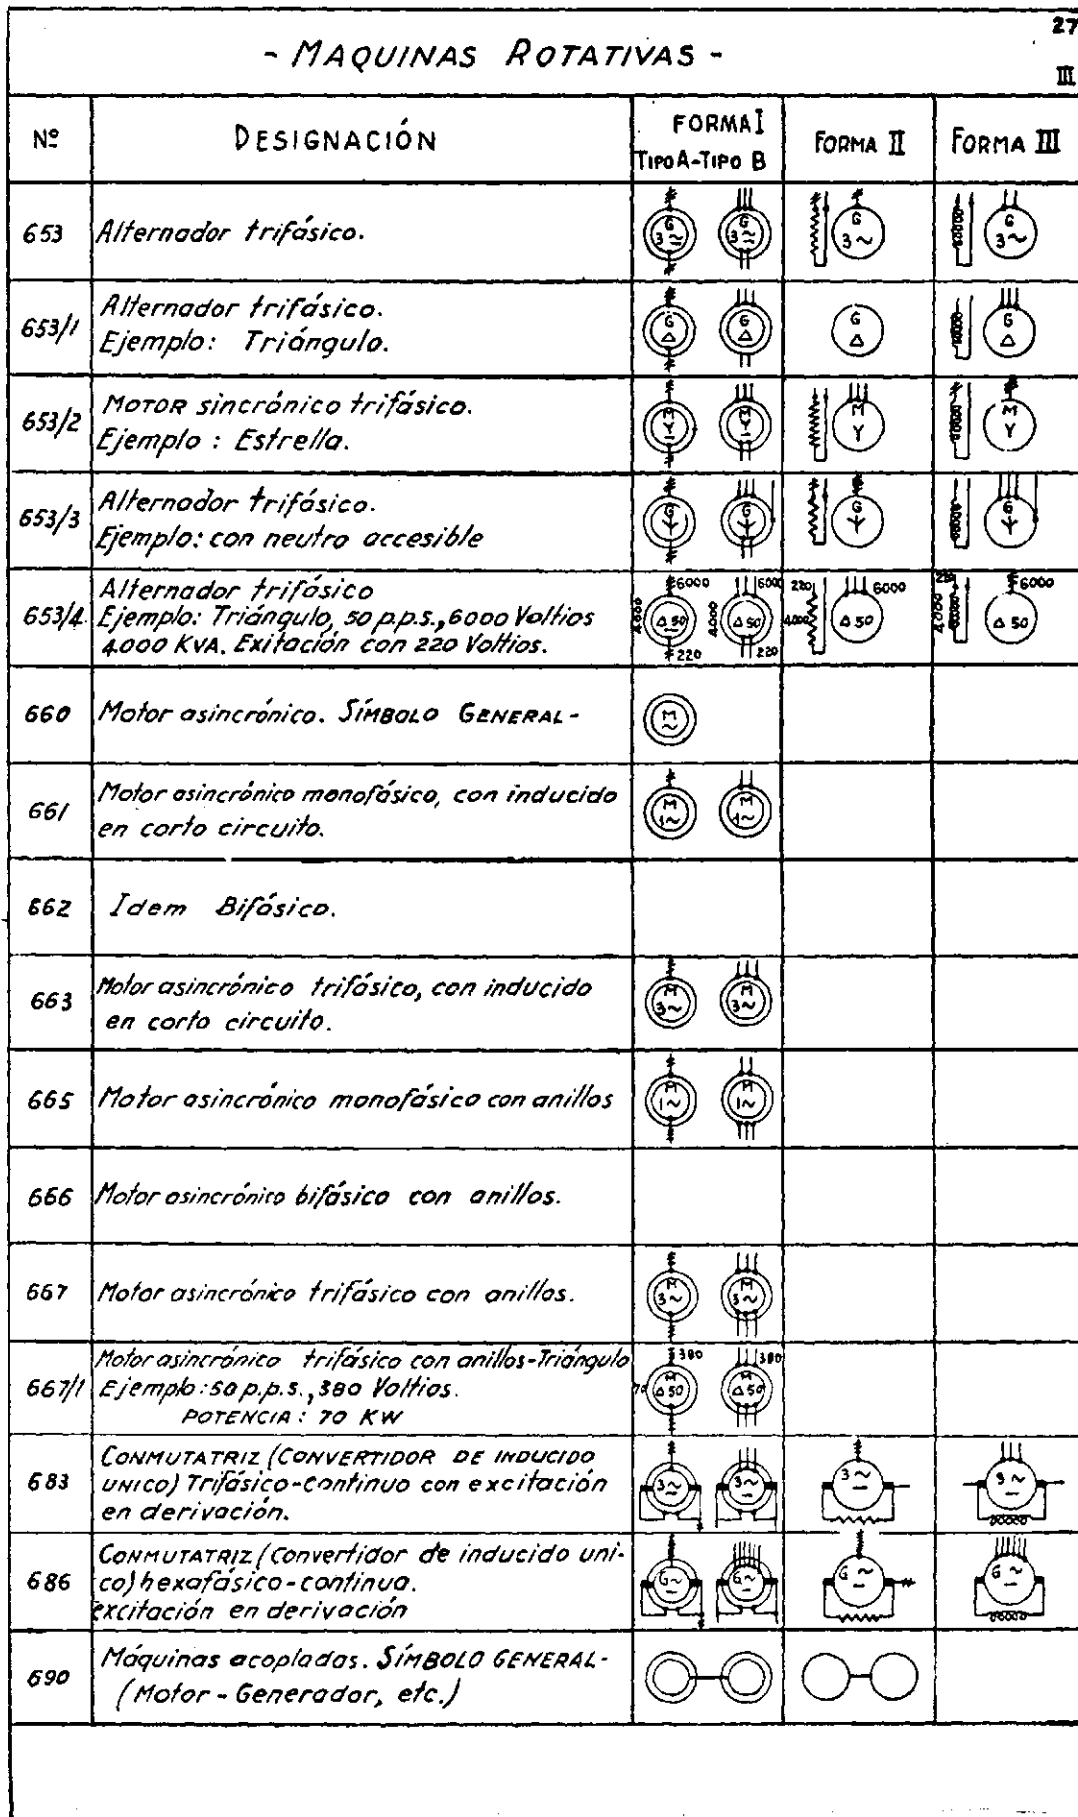 27
- MAQUINAS ROTATIVAS -
III
Nº
DESIGNACIÓN
FORMA I
TIPO A-TIPO B
FORMA II
FORMA III
653
Alternador trifásico.
G
3~
G
3~
G
3~
G
3~
653/1
Alternador trifásico.
Ejemplo: Triángulo.
G
Δ
G
Δ
G
Δ
G
Δ
653/2
MOTOR sincrónico trifásico.
Ejemplo : Estrella.
M
Y
M
Y
M
Y
M
Y
653/3
Alternador trifásico.
Ejemplo: con neutro accesible
G
G
G
G
653/4
Alternador trifásico
Ejemplo: Triángulo, 50 p.p.s., 6000 Voltios
4.000 KVA. Exitación con 220 Voltios.
6000
4.000
Δ 50
220
6000
4.000
Δ 50
220
220
6000
4.000
Δ 50
220
6000
4.000
Δ 50
660
Motor asincrónico. SÍMBOLO GENERAL-
M
~
661
Motor asincrónico monofásico, con inducido
en corto circuito.
M
1~
M
1~
662
Idem Bifásico.
663
Motor asincrónico trifásico, con inducido
en corto circuito.
M
3~
M
3~
665
Motor asincrónico monofásico con anillos
M
1~
M
1~
666
Motor asincrónico bifásico con anillos.
667
Motor asincrónico trifásico con anillos.
M
3~
M
3~
667/1
Motor asincrónico trifásico con anillos-Triángulo
Ejemplo: 50 p.p.s., 380 Voltios.
POTENCIA : 70 KW
380
70
Δ 50
380
Δ 50
683
CONMUTATRIZ (CONVERTIDOR DE INDUCIDO
UNICO) Trifásico-continuo con excitación
en derivación.
3~
3~
3~
3~
686
CONMUTATRIZ (Convertidor de inducido uni-
co) hexafásico-continua.
excitación en derivación
6~
6~
6~
6~
690
Máquinas acopladas. SÍMBOLO GENERAL-
(Motor - Generador, etc.)